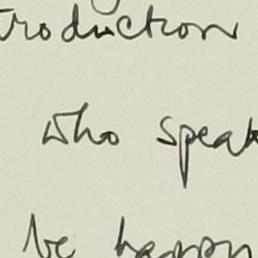 troduction
who speak
be happy